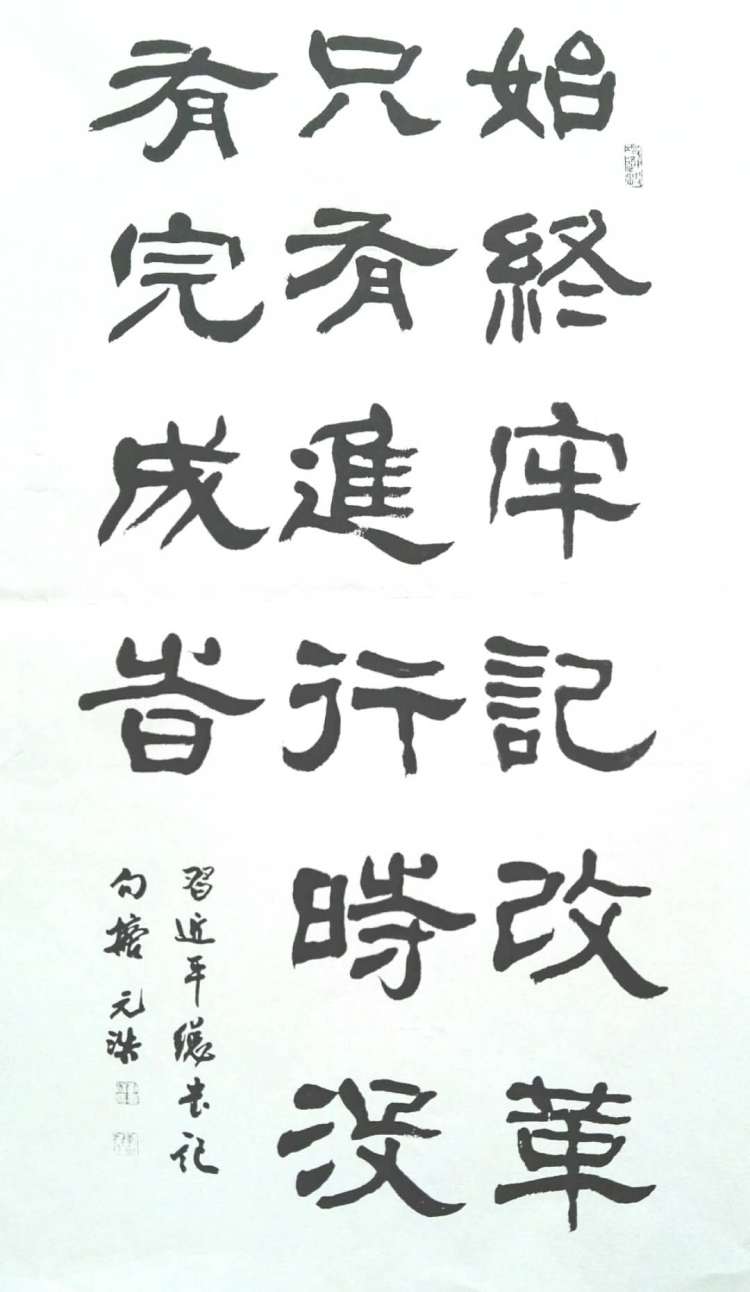 始終牢記改革
只有進行時沒
有完成旹
習近平總書記
句 元